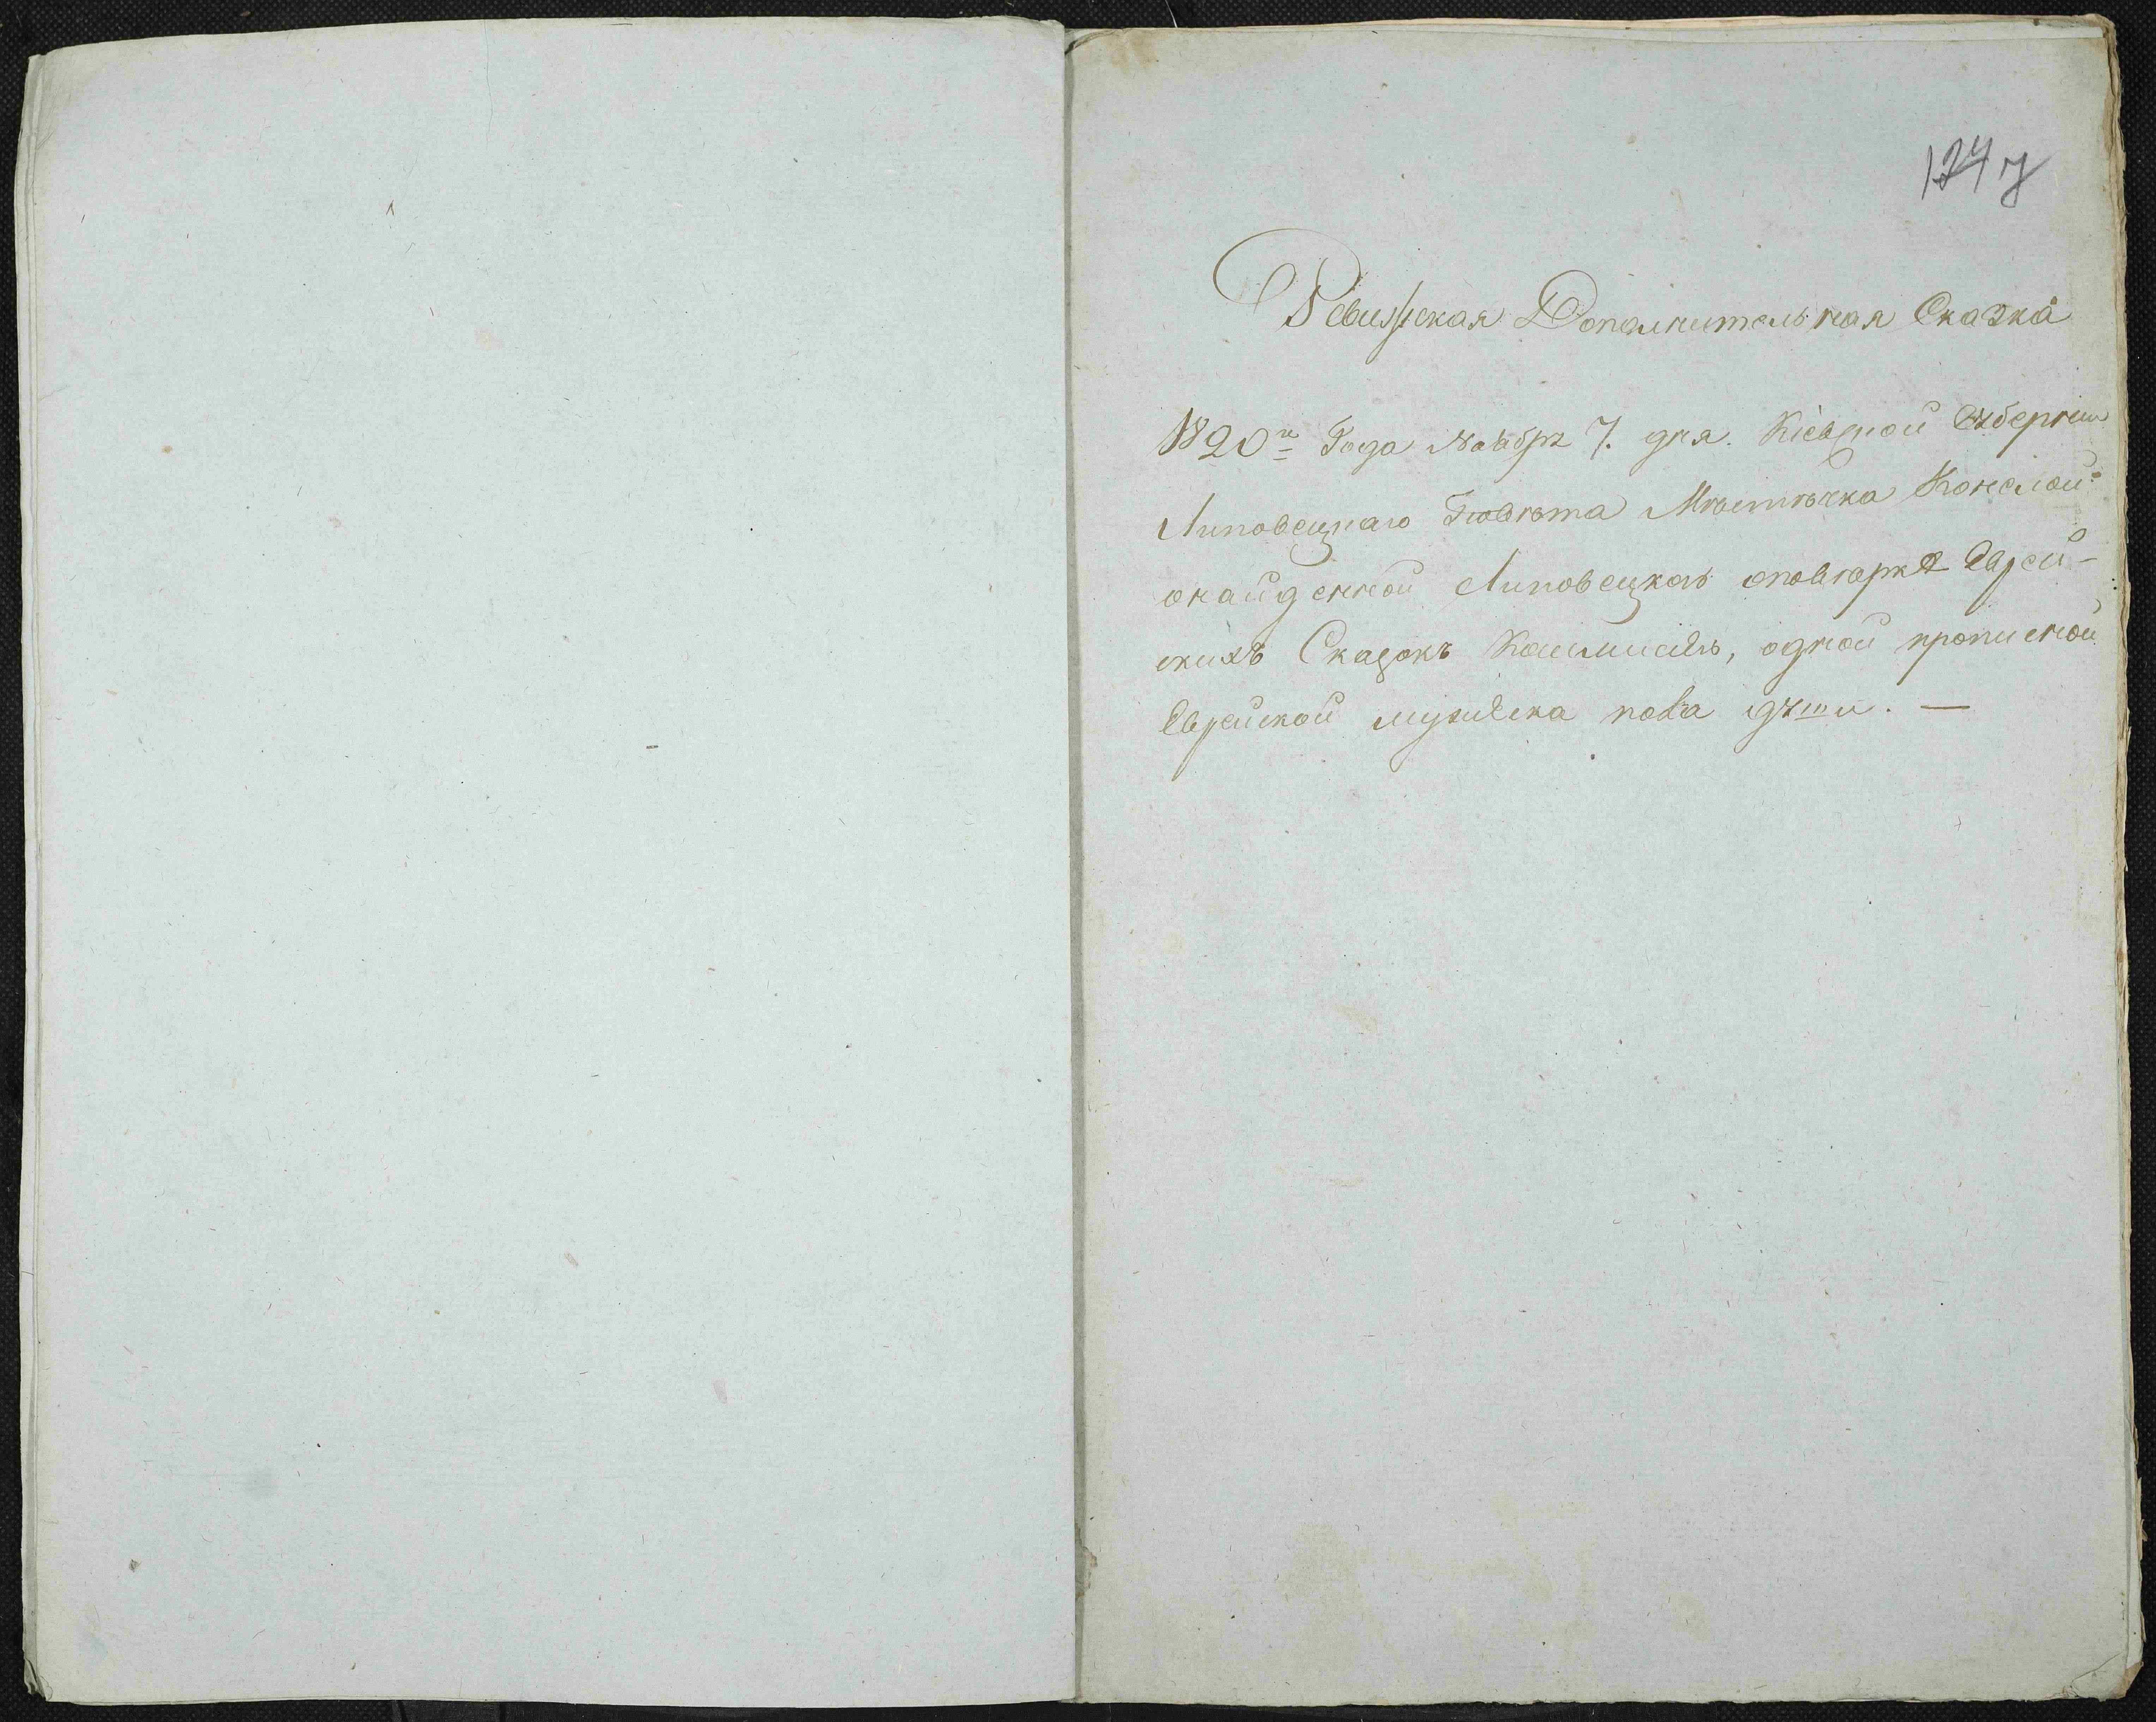 124 7
Ревизская Дополнительная Сказка
1820го Года Ноября 7. дня. Кіевской Губерніи
Липовецкаго Повѣта Мѣстѣчка Конелой
онайденной Липовецкою поверке Еврей-
скихъ Сказокъ Коммисіею, одной прописной
Еврейской мужеска пола души. —